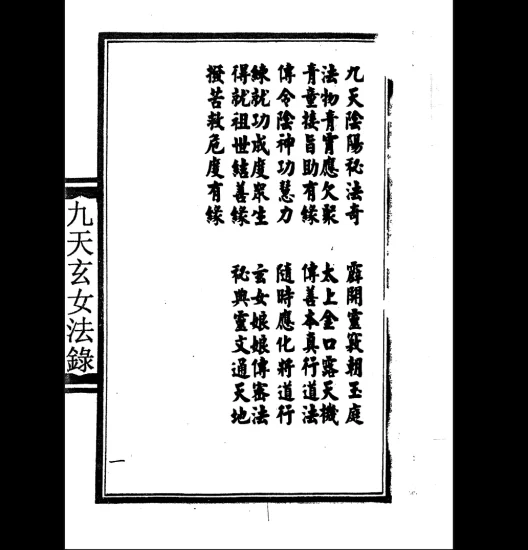 九天陰陽秘法奇　霹開靈竅朝玉庭
法物青霄應欠聚　太上金口露天機
青童接旨助有緣　傳善本真行道法
傳令陰神功慧力　隨時應化將道行
練就功成度眾生　玄女娘娘傳密法
得就祖世結善緣　秘典靈文通天地
撥苦救危度有緣
九天玄女法錄
一